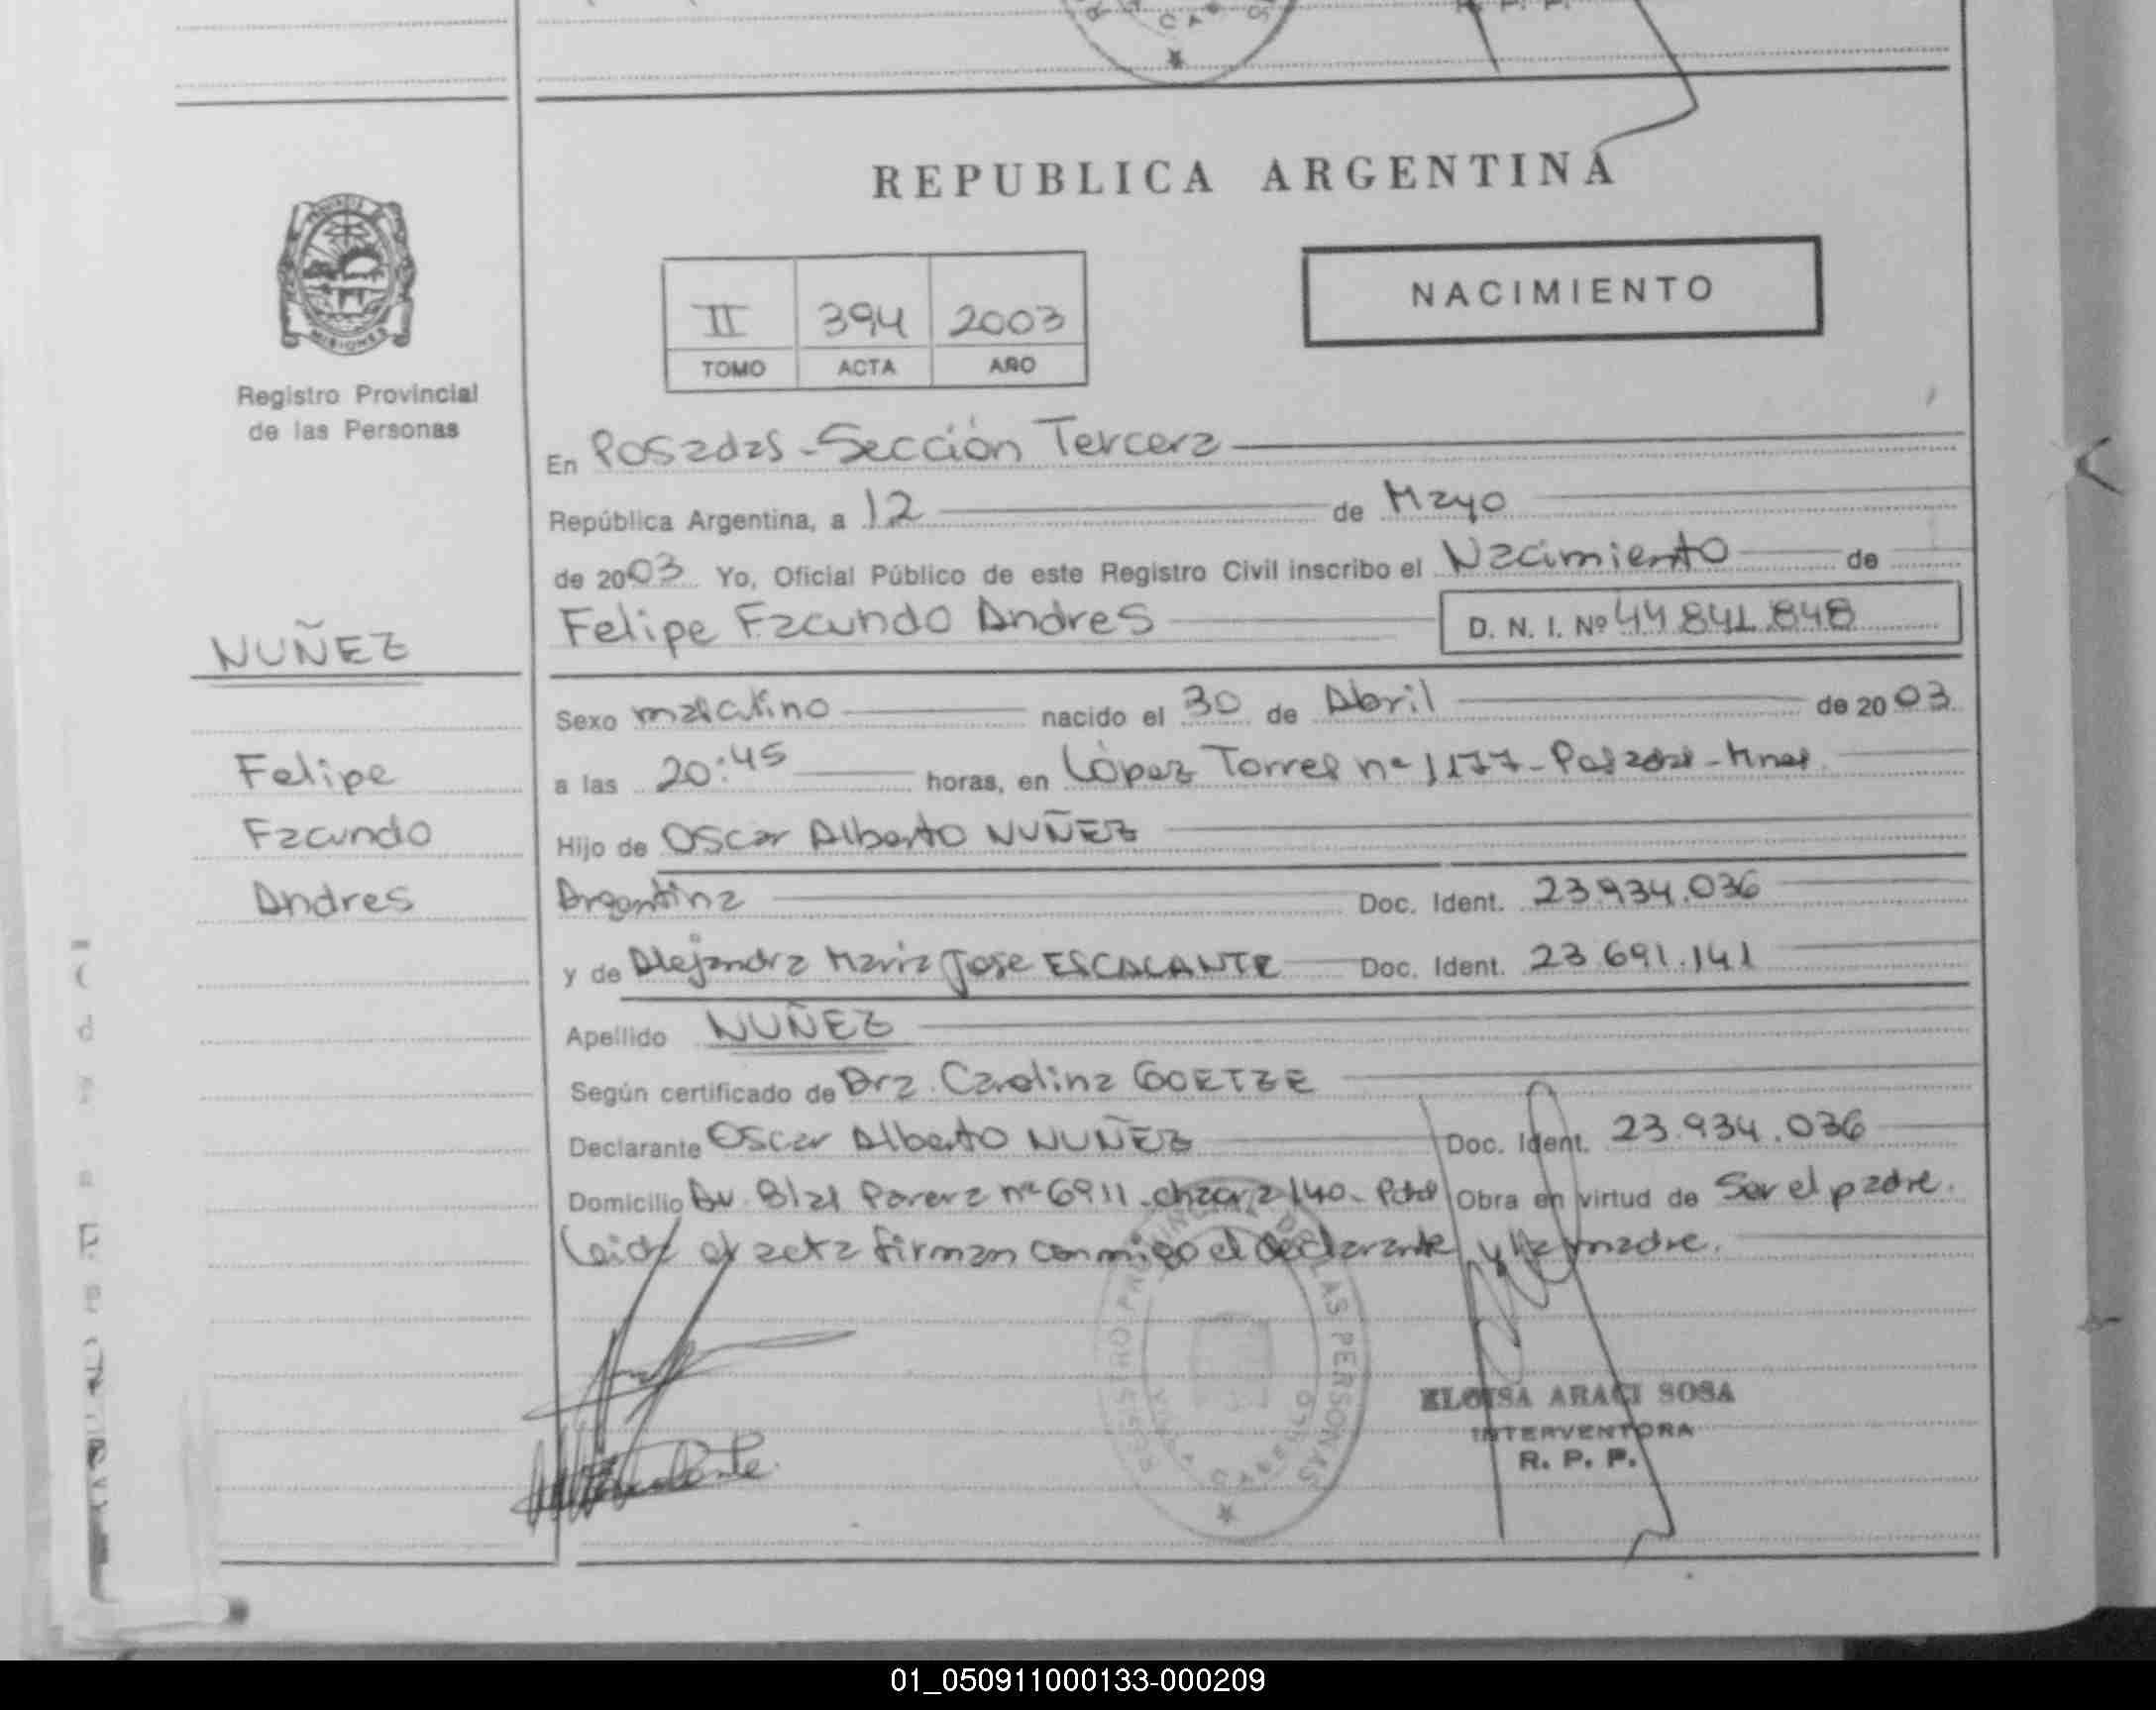 REPUBLICA ARGENTINA
NACIMIENTO
II 394 2003
TOMO ACTA AÑO
Registro Provincial
de las Personas
En Posadas - Sección Tercera
República Argentina, a 12 de Mayo
de 2003 Yo, Oficial Público de este Registro Civil inscribo el Nacimiento de
Felipe Facundo Andres D. N. I. Nº 44 841 848
NUÑEZ
Felipe
Facundo
Andres
Sexo masculino nacido el 30 de Abril de 20 03
a las 20:45 horas, en López Torres nº 1177 - Posadas - Mnes.
Hijo de Oscar Alberto NUÑEZ
Argentina Doc. Ident. 23.934.036
y de Alejandra Maria Jose ESCALANTE Doc. Ident. 23 691.141
Apellido NUÑEZ
Según certificado de Dra. Carolina GOETZE
Declarante Oscar Alberto NUÑEZ Doc. Ident. 23.934.036
Domicilio Av. Blas Parera nº 6911 - chacra 140 - Pdas Obra en virtud de Ser el padre.
Leida el acta firman conmigo el declarante y la madre.
REGISTRO PROVINCIAL DE LAS PERSONAS
ELOISA ARACI SOSA
INTERVENTORA
R. P. P.
01_050911000133-000209